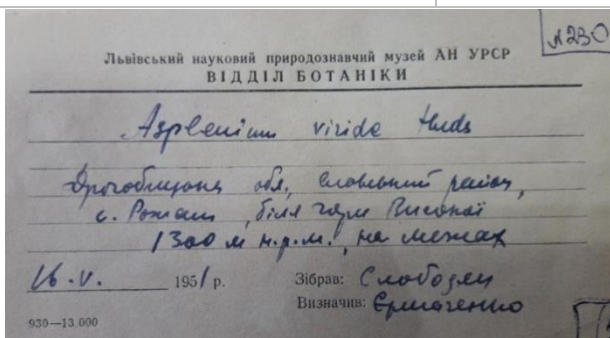 №230
Львівський науковий природознавчий музей АН УРСР
ВІДДІЛ БОТАНІКИ
Asplenium viride Huds
обл, район,
с. біля гори Високої
1300 м н.р.м., на
16.V. 1951 р.
Зібрав: Слободян
Визначив: Єрмаченко
930—13.000